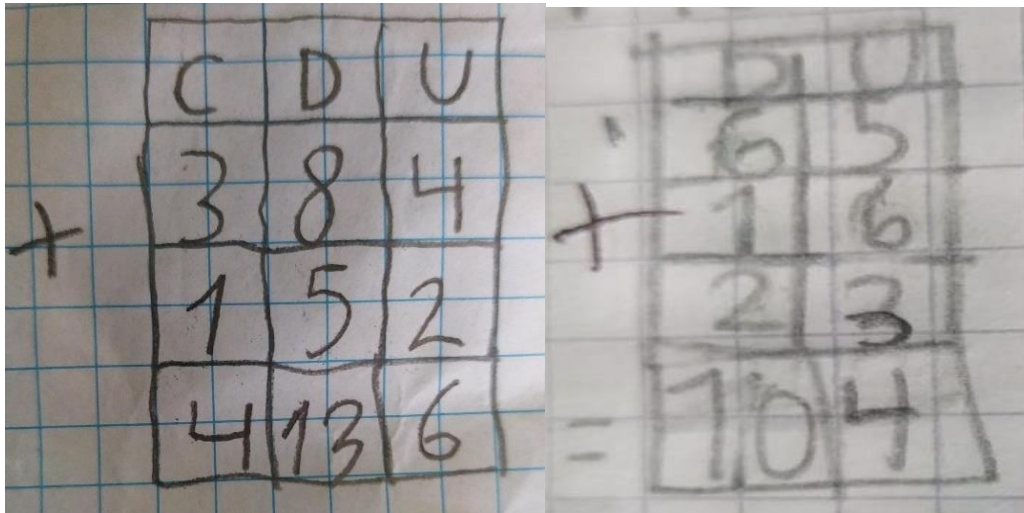 C D U
3 8 4
+
1 5 2
4 13 6
D U
6 5
+ 1 6
2 3
= 10 4